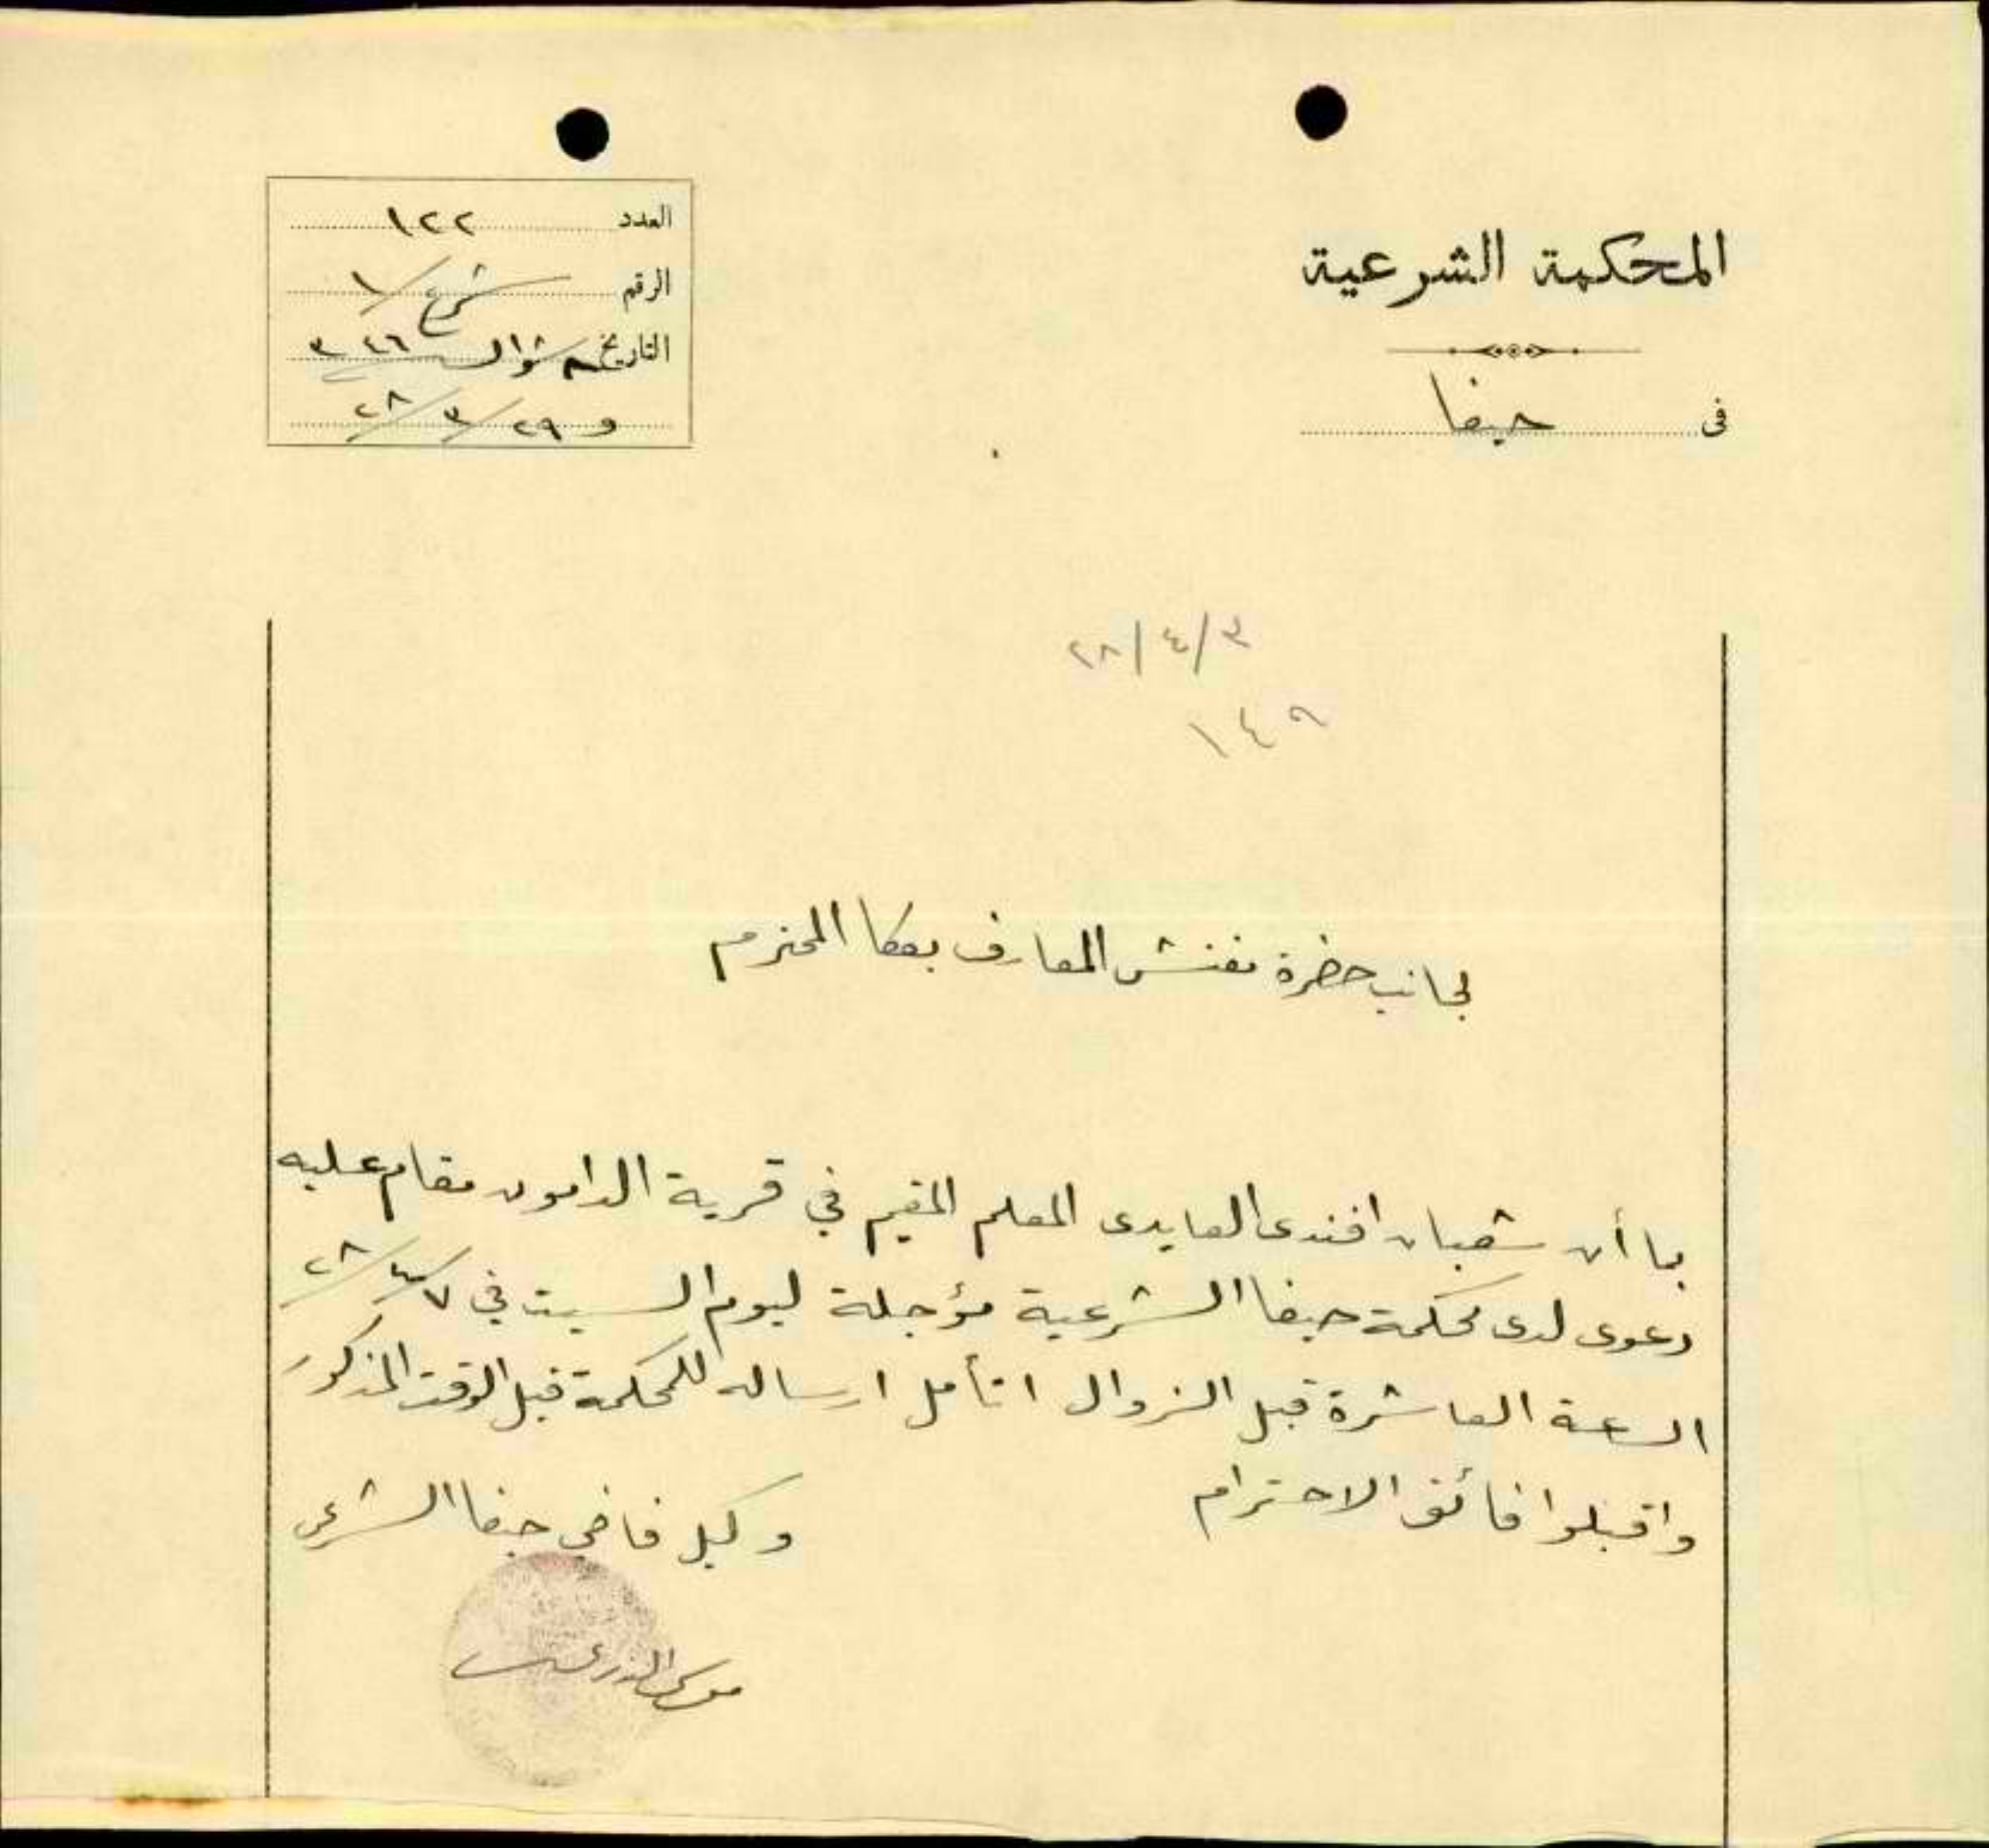 المحكمة الشرعية
فى حيفا
العدد ١٢٢
الرقم شرع / ١
التاريخ ٨ شوال سنة ٣٤٦
و ٢٩ / ٣ / ٢٨
٢٨/٤/٣
١٤٩
لجانب حضرة مفتش المعارف بعكا المحترم
بما أن شعبان افندى العايدى المعلم المقيم في قرية الدامون مقام عليه
دعوى لدى محكمة حيفا الشرعية مؤجلة ليوم السبت في ٧/٤/٢٨
الساعة العاشرة قبل الزوال اتأمل ارساله للمحكمة قبل الوقت المذكور
واقبلوا فائق الاحترام
وكيل قاضي حيفا الشرعي